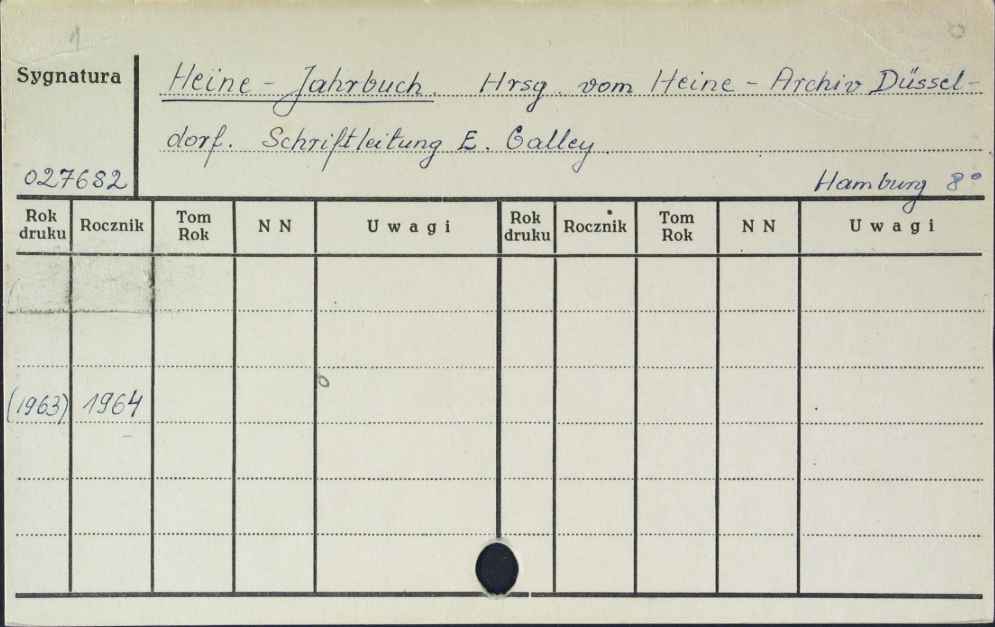 1
Sygnatura
Heine - Jahrbuch. Hrsg. vom Heine - Archiv Düssel-
dorf. Schriftleitung E. Galley.
027682
Hamburg 8°
Rok druku Rocznik Tom Rok N N Uwagi Rok druku Rocznik Tom Rok N N Uwagi
(1963) 1964